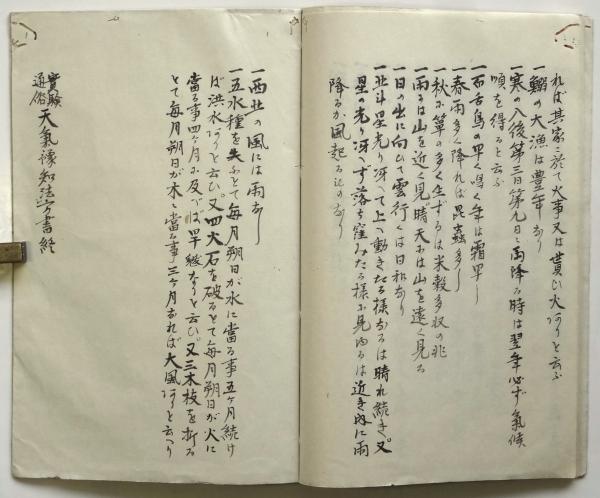 れば其家ニ於て火事又は貰ひ火アリと云ふ
一鰯の大漁は豊年なり
一寒の入後第三日第九日ニ雨降る時は翌年必ず氣候
順を得ると云ふ
一百舌鳥の早く鳴く年は霜早し
一春雨多く降れば昆蟲多し
一秋ニ箪の多く生ずるは米穀多収の兆
一雨には山を近く見晴天には山を遠く見る
一日の出に向ひて雲行くは日和なり
一北斗星光り冴へて上へ動きたる様なるは晴れ続き。又
星の光り冴へず落ち窪みたる様に見ゆるは近き内に雨
降るか風起るものなり
一西北の風には雨なし
一五水種を失ふとて毎月朔日が水に當る事五ヶ月続け
ば洪水アリと云ひ又四大石を破るとて毎月朔日が火に
當る事四ヶ月に及べば旱綏なりと云ひ又三木枝を折る
とて毎月朔日が木に當る事三ヶ月なれば大風アリと云へり
實驗
通俗 天氣豫知法方書終